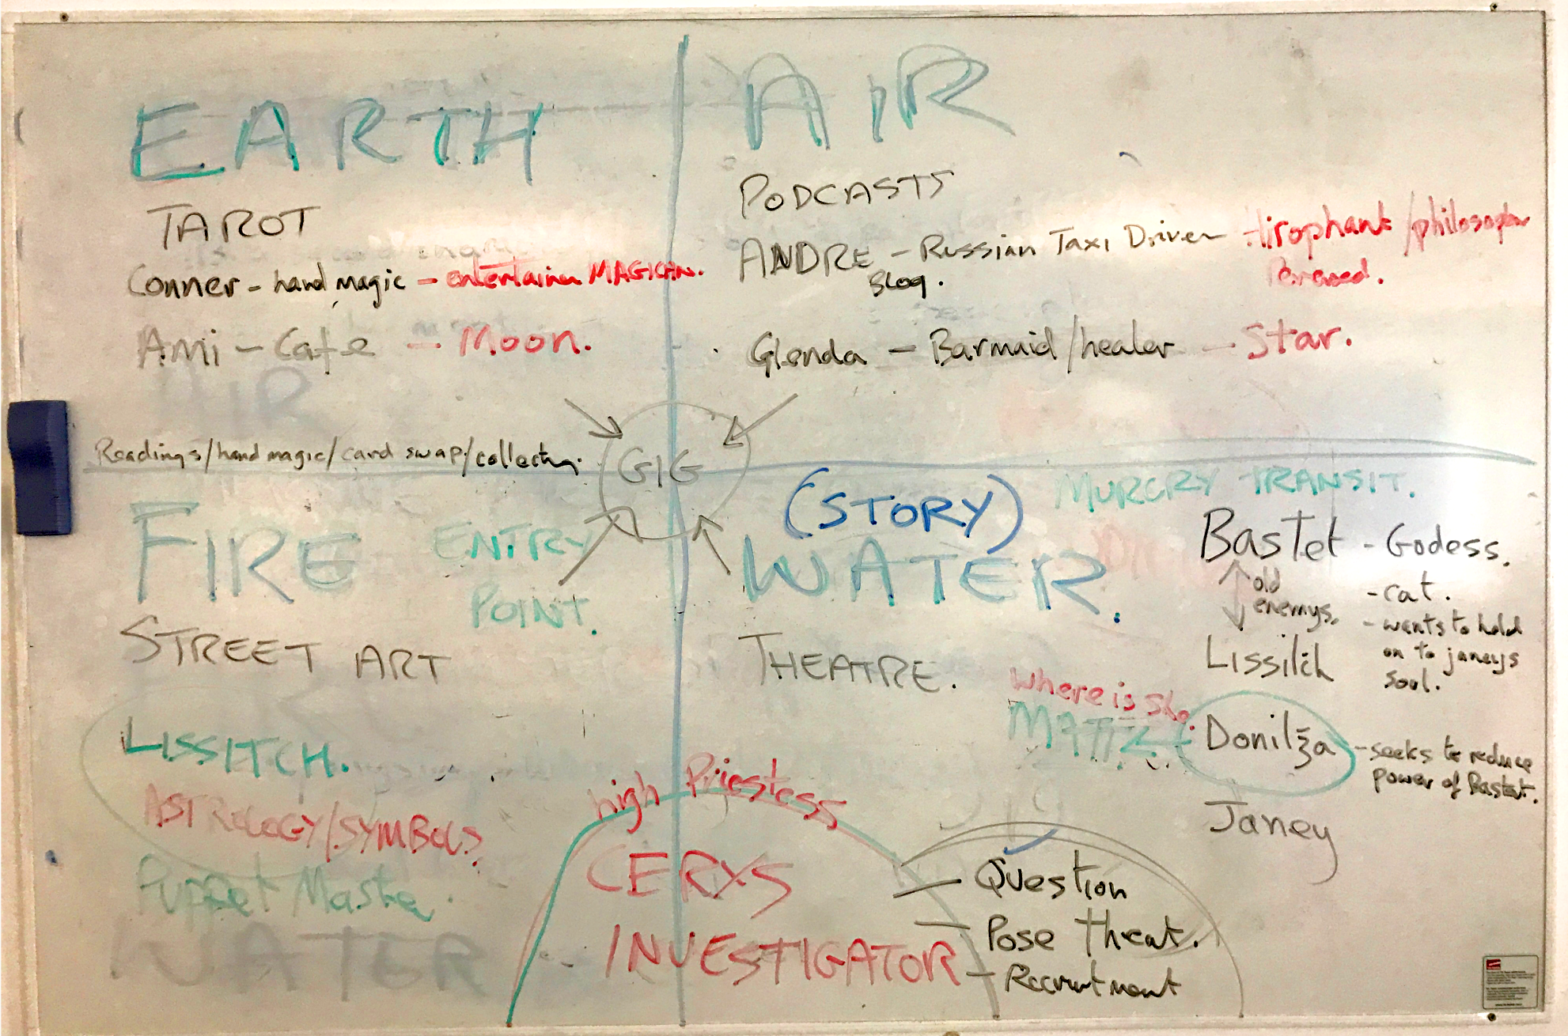 EARTH
TAROT
Conner - hand magic - entertainer MAGICIAN.
Ami - Cafe - Moon.
Readings/hand magic/card swap/collecting.
AIR
PODCASTS
ANDRE - Russian Taxi Driver - Hirophant /philosopher
Blog.
Glenda - Barmaid/healer - Star.
GIG
FIRE
ENTRY
POINT.
STREET ART
LISSITCH.
ASTROLOGY/SYMBOLS
Puppet Master.
WATER
(STORY)
WATER.
THEATRE.
MURCRY TRANSIT.
Bastet - Godess.
old
enemys.
- cat.
- wants to hold
on to janeys
soul.
Lissitch
where is she.
Donilza
- seeks to reduce
power of Bastet.
Janey
high Priestess
CERXS
INVESTIGATOR
- Question
- Pose threat.
- Recruitment